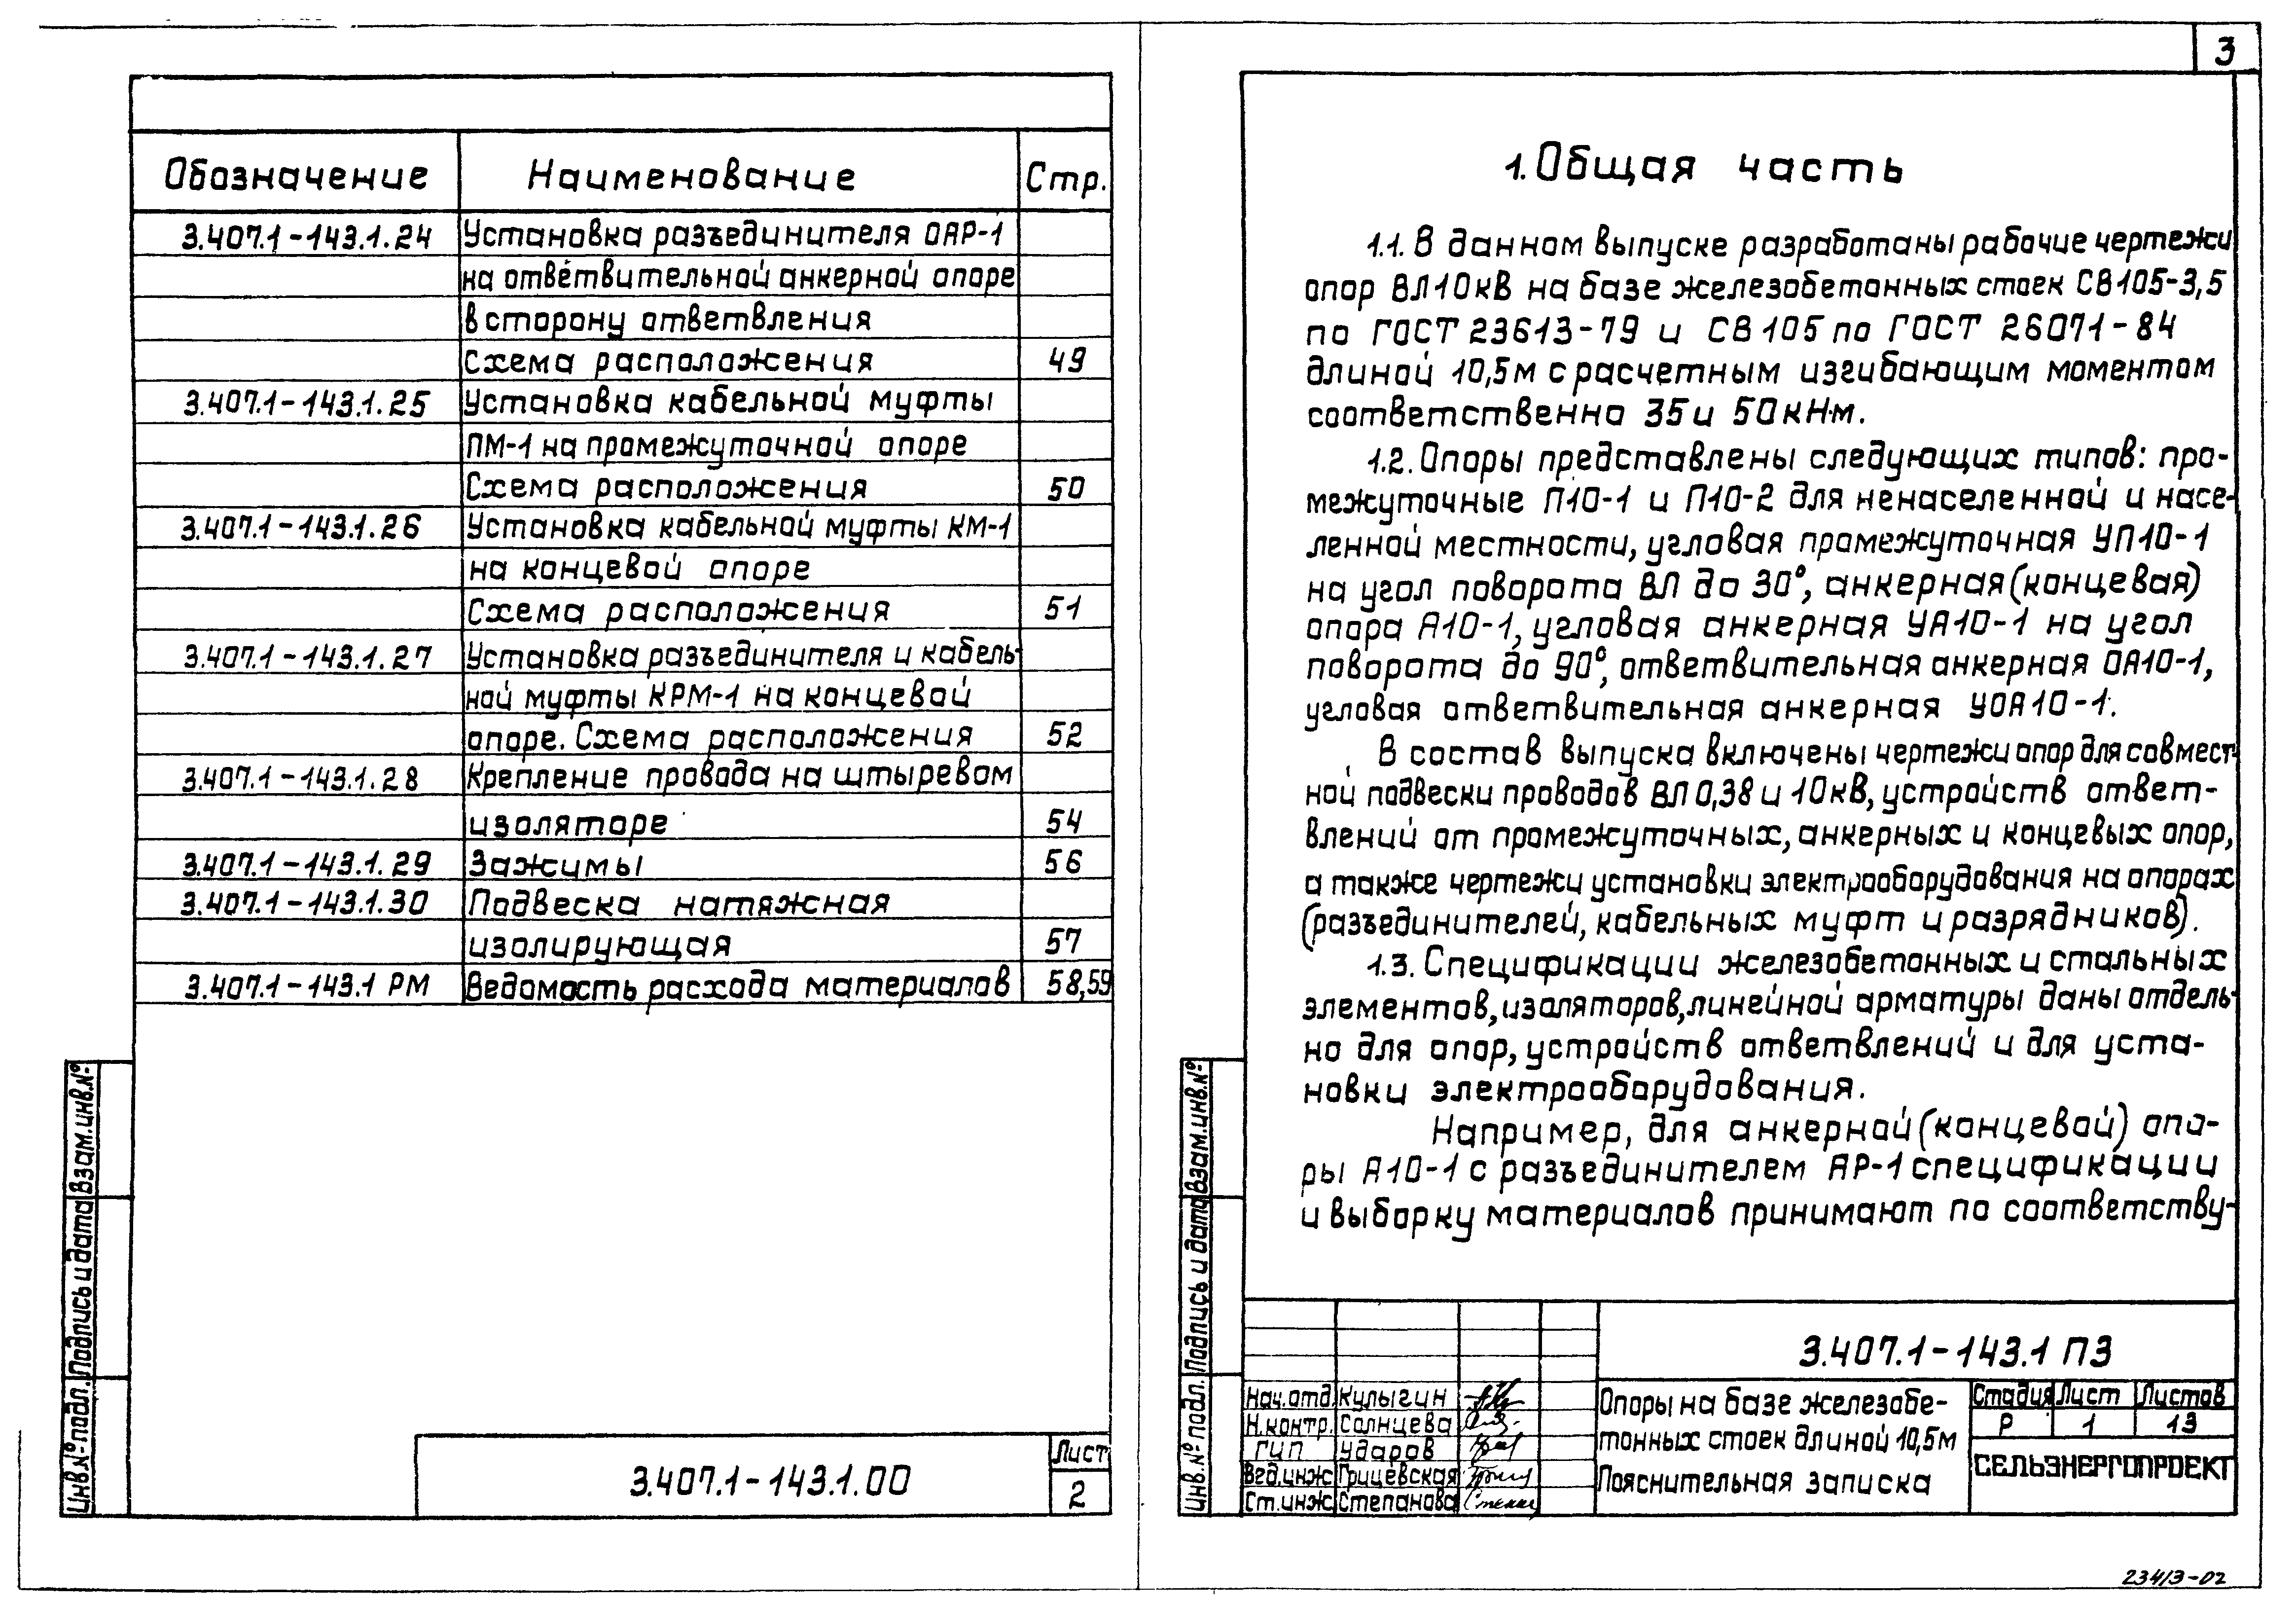 3
Обозначение Наименование Стр.
3.407.1-143.1.24 Установка разъединителя ОАР-1
на ответвительной анкерной опоре
в сторону ответвления
Схема расположения 49
3.407.1-143.1.25 Установка кабельной муфты
ПМ-1 на промежуточной опоре
Схема расположения 50
3.407.1-143.1.26 Установка кабельной муфты КМ-1
на концевой опоре
Схема расположения 51
3.407.1-143.1.27 Установка разъединителя и кабель-
ной муфты КРМ-1 на концевой
опоре. Схема расположения 52
3.407.1-143.1.28 Крепление провода на штыревом
изоляторе 54
3.407.1-143.1.29 Зажимы 56
3.407.1-143.1.30 Подвеска натяжная
изолирующая 57
3.407.1-143.1 РМ Ведомость расхода материалов 58,59
Взам.инв.№
Подпись и дата
Инв.№ подл.
3.407.1-143.1.00
Лист
2
1. Общая часть
1.1. В данном выпуске разработаны рабочие чертежи
опор ВЛ10кВ на базе железобетонных стоек СВ105-3,5
по ГОСТ 23613-79 и СВ105 по ГОСТ 26071-84
длиной 10,5м с расчетным изгибающим моментом
соответственно 35 и 50кН·м.
1.2. Опоры представлены следующих типов: про-
межуточные П10-1 и П10-2 для ненаселенной и насе-
ленной местности, угловая промежуточная УП10-1
на угол поворота ВЛ до 30°, анкерная (концевая)
опора А10-1, угловая анкерная УА10-1 на угол
поворота до 90°, ответвительная анкерная ОА10-1,
угловая ответвительная анкерная УОА10-1.
В состав выпуска включены чертежи опор для совмест-
ной подвески проводов ВЛ 0,38 и 10кВ, устройств ответ-
влений от промежуточных, анкерных и концевых опор,
а также чертежи установки электрооборудования на опорах
(разъединителей, кабельных муфт и разрядников).
1.3. Спецификации железобетонных и стальных
элементов, изоляторов, линейной арматуры даны отдель-
но для опор, устройств ответвлений и для уста-
новки электрооборудования.
Например, для анкерной (концевой) опо-
ры А10-1 с разъединителем АР-1 спецификации
и выборку материалов принимают по соответству-
Взам.инв.№
Подпись и дата
Инв.№ подл.
3.407.1-143.1 ПЗ
Нач.отд. Кулыгин
Н.контр. Солнцева
ГИП Ударов
Вед.инж Грицевская
Ст.инж Степанова
Опоры на базе железобе-
тонных стоек длиной 10,5м
Пояснительная записка
Стадия Лист Листов
Р 1 13
СЕЛЬЭНЕРГОПРОЕКТ
23413-02